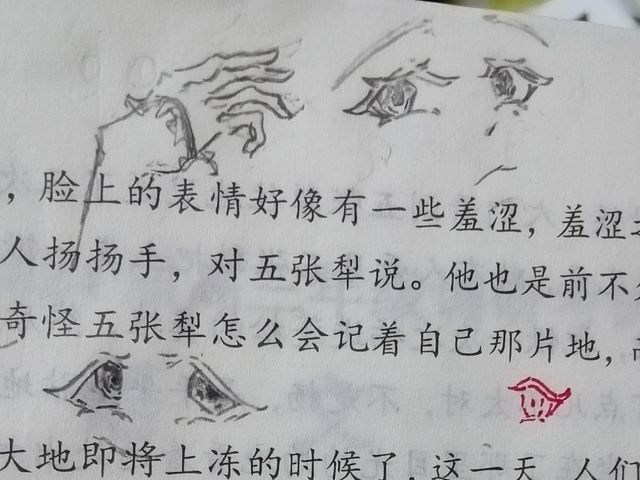 ，脸上的表情好像有一些羞涩，羞涩
人扬扬手，对五张犁说。他也是前不
奇怪五张犁怎么会记着自己那片地，
大地即将上冻的时候了，这一天，人们